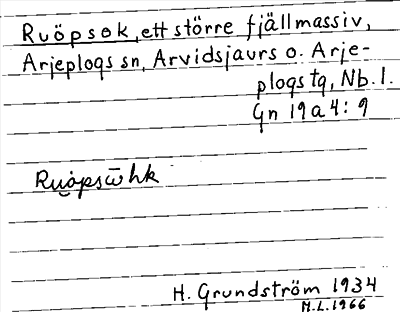 Ruöpsok, ett större fjällmassiv,
Arjeplogs sn, Arvidsjaurs o. Arje-
plogs tg, Nb. l.
Gn 19a4: 9
Ruȯ̮psω̄hk
H. Grundström 1934
M.L. 1966